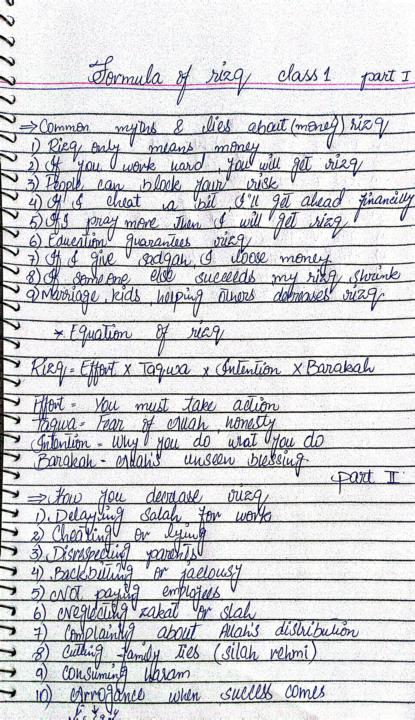 Formula of rizq class 1 part I
⇒ Common myths & lies about (money) rizq
1) Rizq only means money
2) If you work hard, you will get rizq
3) People can block your risk
4) If I cheat a bit I'll get ahead financially
5) If I pray more then I will get rizq
6) Education guarantees rizq
7) If I give sadqah, I loose money.
8) If someone else succeeds my rizq shrink
9) Marriage, kids, helping others decreases rizq
* Equation of rizq
Rizq = Effort x Taqwa x Intention x Barakah
Effort = You must take action
Taqwa = Fear of Allah, honesty
Intention = Why you do what you do
Barakah - Allah's unseen blessing.
part II
⇒ How you decrease rizq
1) Delaying salah for work
2) Cheating or lying
3) Disrespecting parents
4) Backbiting or jaelousy
5) Not paying employees
6) Neglecting zakat or slah
7) Complaining about Allah's distribution
8) Cutting family ties (silah rehmi)
9) Consuming Haram
10) Arrogance when success comes